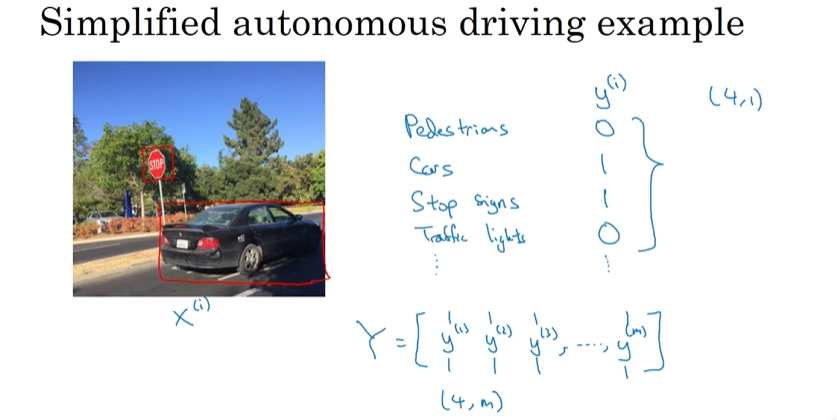 Simplified autonomous driving example
y^(i) (4,1)
Pedestrians 0
Cars 1
Stop signs 1
Traffic lights 0
⋮ ⋮
STOP
x^(i)
Y = [ y^(1) y^(2) y^(3), ...., y^(m) ]
(4, m)